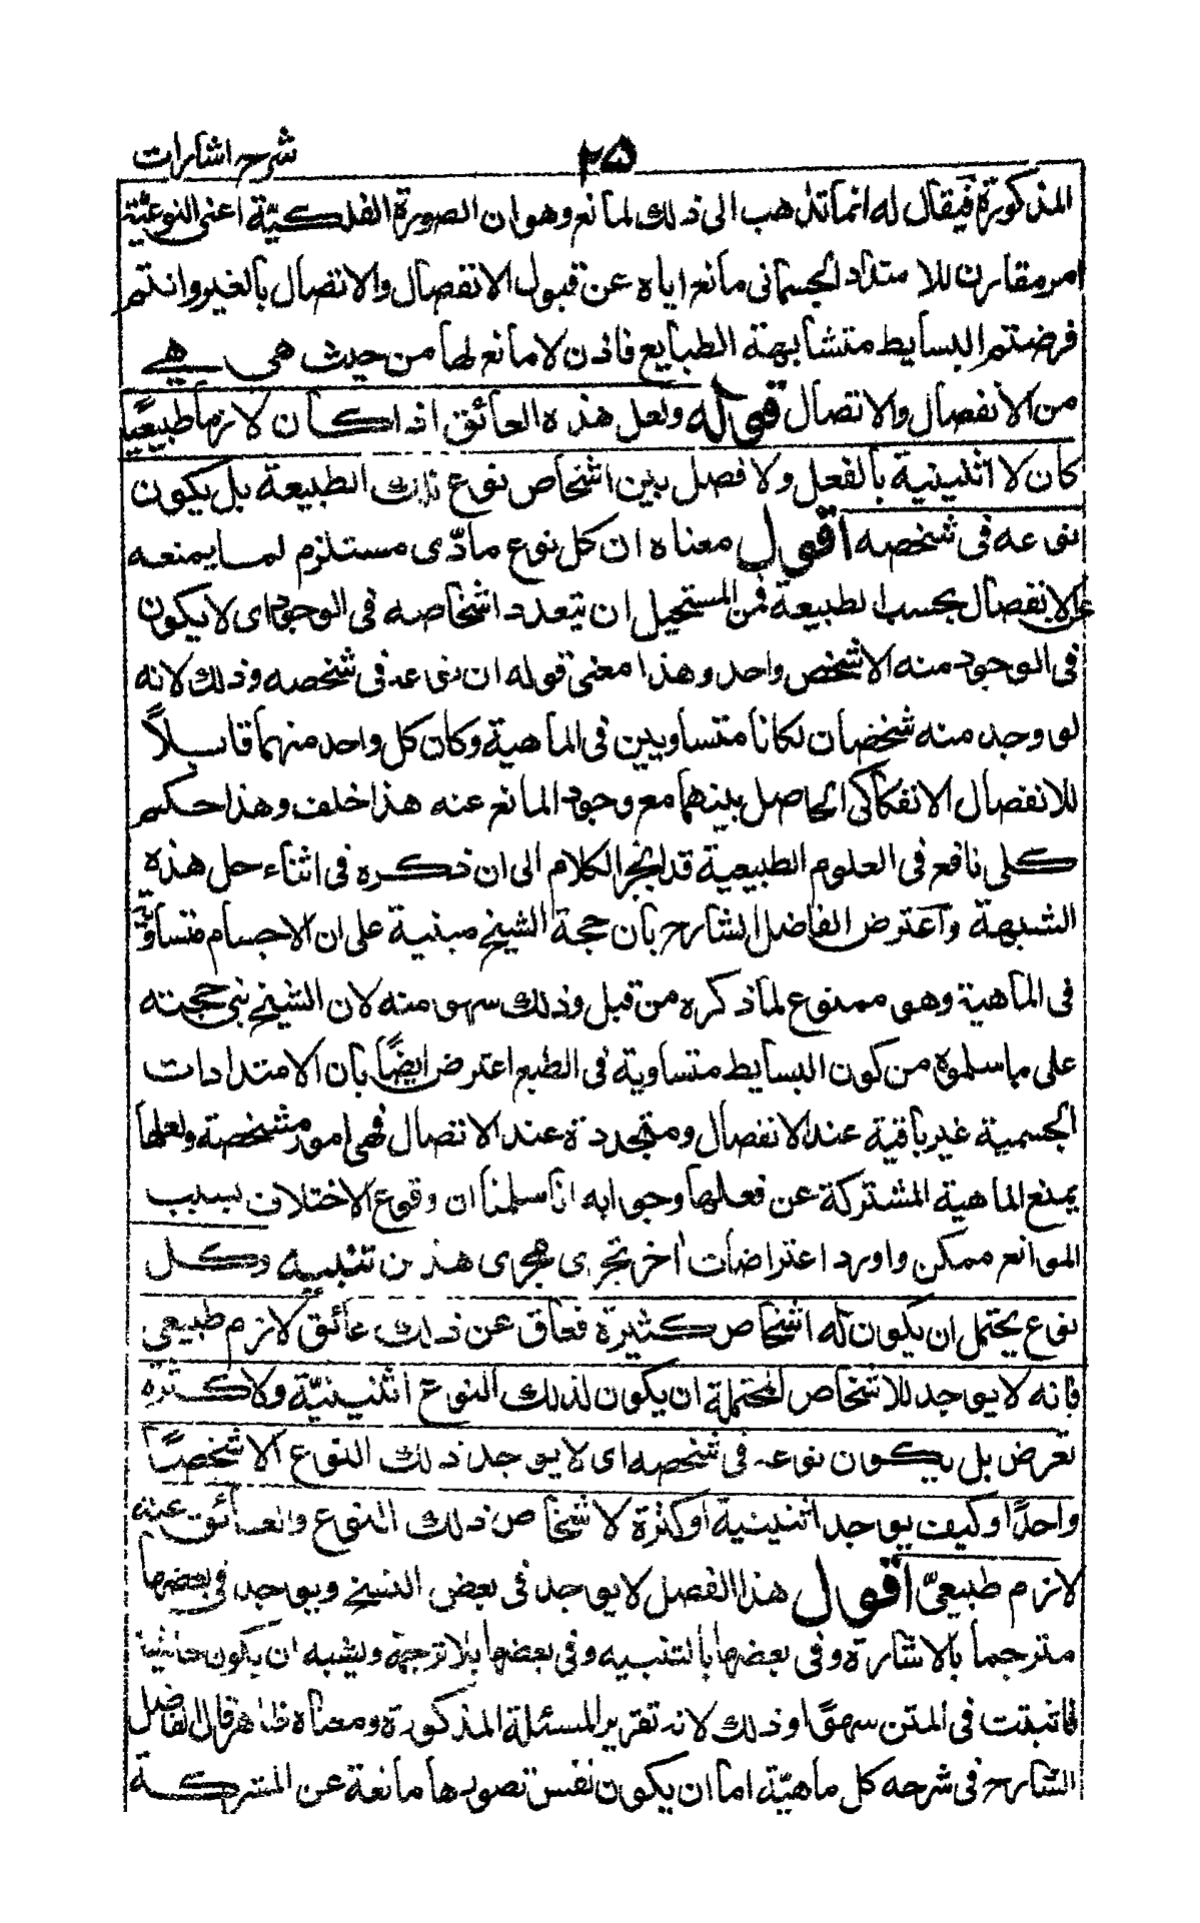 ٢۵
شرح اشارات
المذكورة فيقال له انما تذهب الى ذلك لمانع وهو ان الصورة الفلكيّة اعنى النوعيّة
امر مقارن للامتداد الجسمانى مانع اياه عن قبول الانفصال والاتصال بالغير وانتم
فرضتم البسايط متشابهة الطبايع فاذن لا مانع لها من حيث هى هى
من الانفصال والاتصال قوله ولعل هذه العائق اذا كان لازما طبيعيًا
كان لا اثنينية بالفعل ولا فصل بين اشخاص نوع تلك الطبيعة بل يكون
نوعه فى شخصه اقول معناه ان كل نوع مادّى مستلزم لما يمنعه
عن الانفصال بحسب الطبيعة فمن المستحيل ان يتعدد اشخاصه فى الوجود اى لا يكون
فى الوجود منه الا شخص واحد وهذا معنى قوله ان نوعه فى شخصه وذلك لانه
لو وجد منه شخصان لكانا متساويين فى الماهية وكان كل واحد منهما قابلاً
للانفصال الانفكاكى الحاصل بينهما مع وجود المانع عنه هذا خلف وهذا حكم
كلى نافع فى العلوم الطبيعية قد انجر الكلام الى ان ذكره فى اثناء حل هذه
الشبهة واعترض الفاضل الشارح بان حجة الشيخ مبنية على ان الاجسام متساوية
فى الماهية وهو ممنوع لما ذكره من قبل وذلك سهو منه لان الشيخ بنى حجته
على ما سلموه من كون البسايط متساوية فى الطبع اعترض ايضًا بان الامتدادات
الجسمية غير باقية عند الانفصال ومتجددة عند الاتصال فهى امور مشخصة ولعلها
يمنع الماهية المشتركة عن فعلها وجوابه انا سلمنا ان وقوع الاختلاف بسبب
الموانع ممكن واورد اعتراضات اخر تجرى مجرى هذين تنبيه وكل
نوع يحتمل ان يكون له اشخاص كثيرة فعاق عن ذلك عائق لازم طبيعى
فانه لا يوجد للاشخاص المحتملة ان يكون لذلك النوع اثنينيّة ولا كثرة
تعرض بل يكون نوعه فى شخصه اى لا يوجد ذلك النوع الا شخصًا
واحدًا وكيف يوجد اثنينية او كثرة لاشخاص ذلك النوع والعائق عنه
لازم طبيعىّ اقول هذا الفصل لا يوجد فى بعض النسخ ويوجد فى بعضها
مترجما بالاشارة وفى بعضها بالتنبيه وفى بعضها بلا ترجمة ويشبه ان يكون حاشية
فاثبتت فى المتن سهوًا وذلك لانه تقرير المسئلة المذكورة ومعناه ظاهر قال الفاضل
الشارح فى شرحه كل ماهيّة اما ان يكون نفس تصورها مانعة عن الشركة